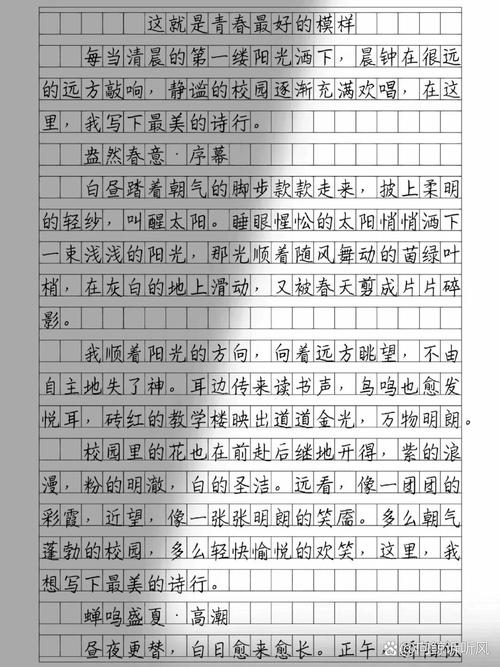 这就是青春最好的模样
每当清晨的第一缕阳光洒下，晨钟在很远
的远方敲响，静谧的校园逐渐充满欢唱，在这
里，我写下最美的诗行。
盎然春意·序幕
白昼踏着朝气的脚步款款走来，披上柔明
的轻纱，叫醒太阳。睡眼惺忪的太阳悄悄洒下
一束浅浅的阳光，那光顺着随风舞动的苗绿叶
梢，在灰白的地上滑动，又被春天剪成片片碎
影。
我顺着阳光的方向，向着远方眺望，不由
自主地失了神。耳边传来读书声，鸟鸣也愈发
悦耳，砖红的教学楼映出道道金光，万物明朗。
校园里的花也在前赴后继地开得，紫的浪
漫，粉的明澈，白的圣洁。远看，像一团团的
彩霞，近望，像一张张明朗的笑靥。多么朝气
蓬勃的校园，多么轻快愉悦的欢笑，这里，我
想写下最美的诗行。
蝉鸣盛夏·高潮
昼夜更替，白日愈来愈长。正午
听风